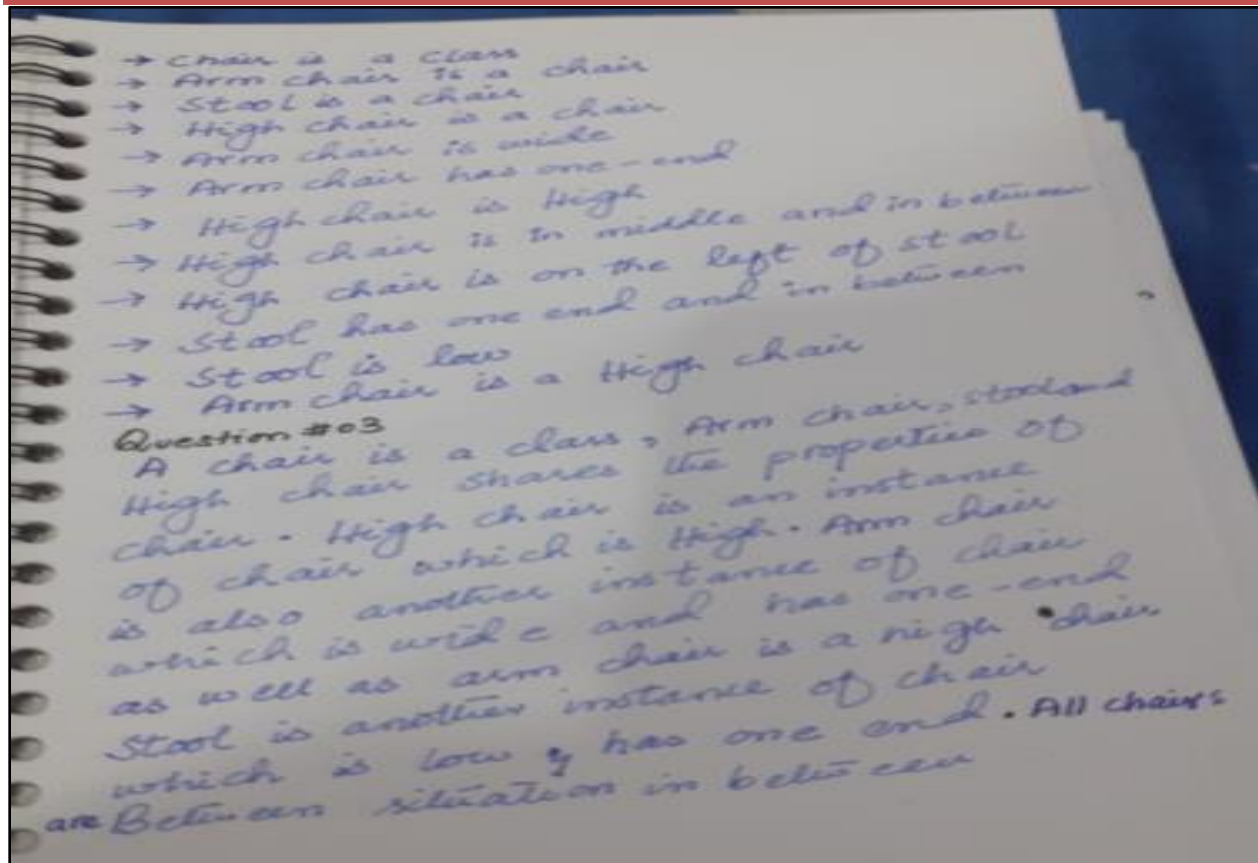 → Chair is a class
→ Arm chair is a chair
→ Stool is a chair
→ High chair is a chair
→ Arm chair is wide
→ Arm chair has one-end
→ High chair is High
→ High chair is in middle and in between
→ High chair is on the left of stool
→ Stool has one end and in between
→ Stool is low
→ Arm chair is a High chair
Question #03
A chair is a class, Arm chair, stool and
High chair shares the properties of
chair. High chair is an instance
of chair which is High. Arm chair
is also another instance of chair
which is wide and has one-end
as well as arm chair is a high chair
Stool is another instance of chair
which is low & has one end. All chairs
are Between situation in between